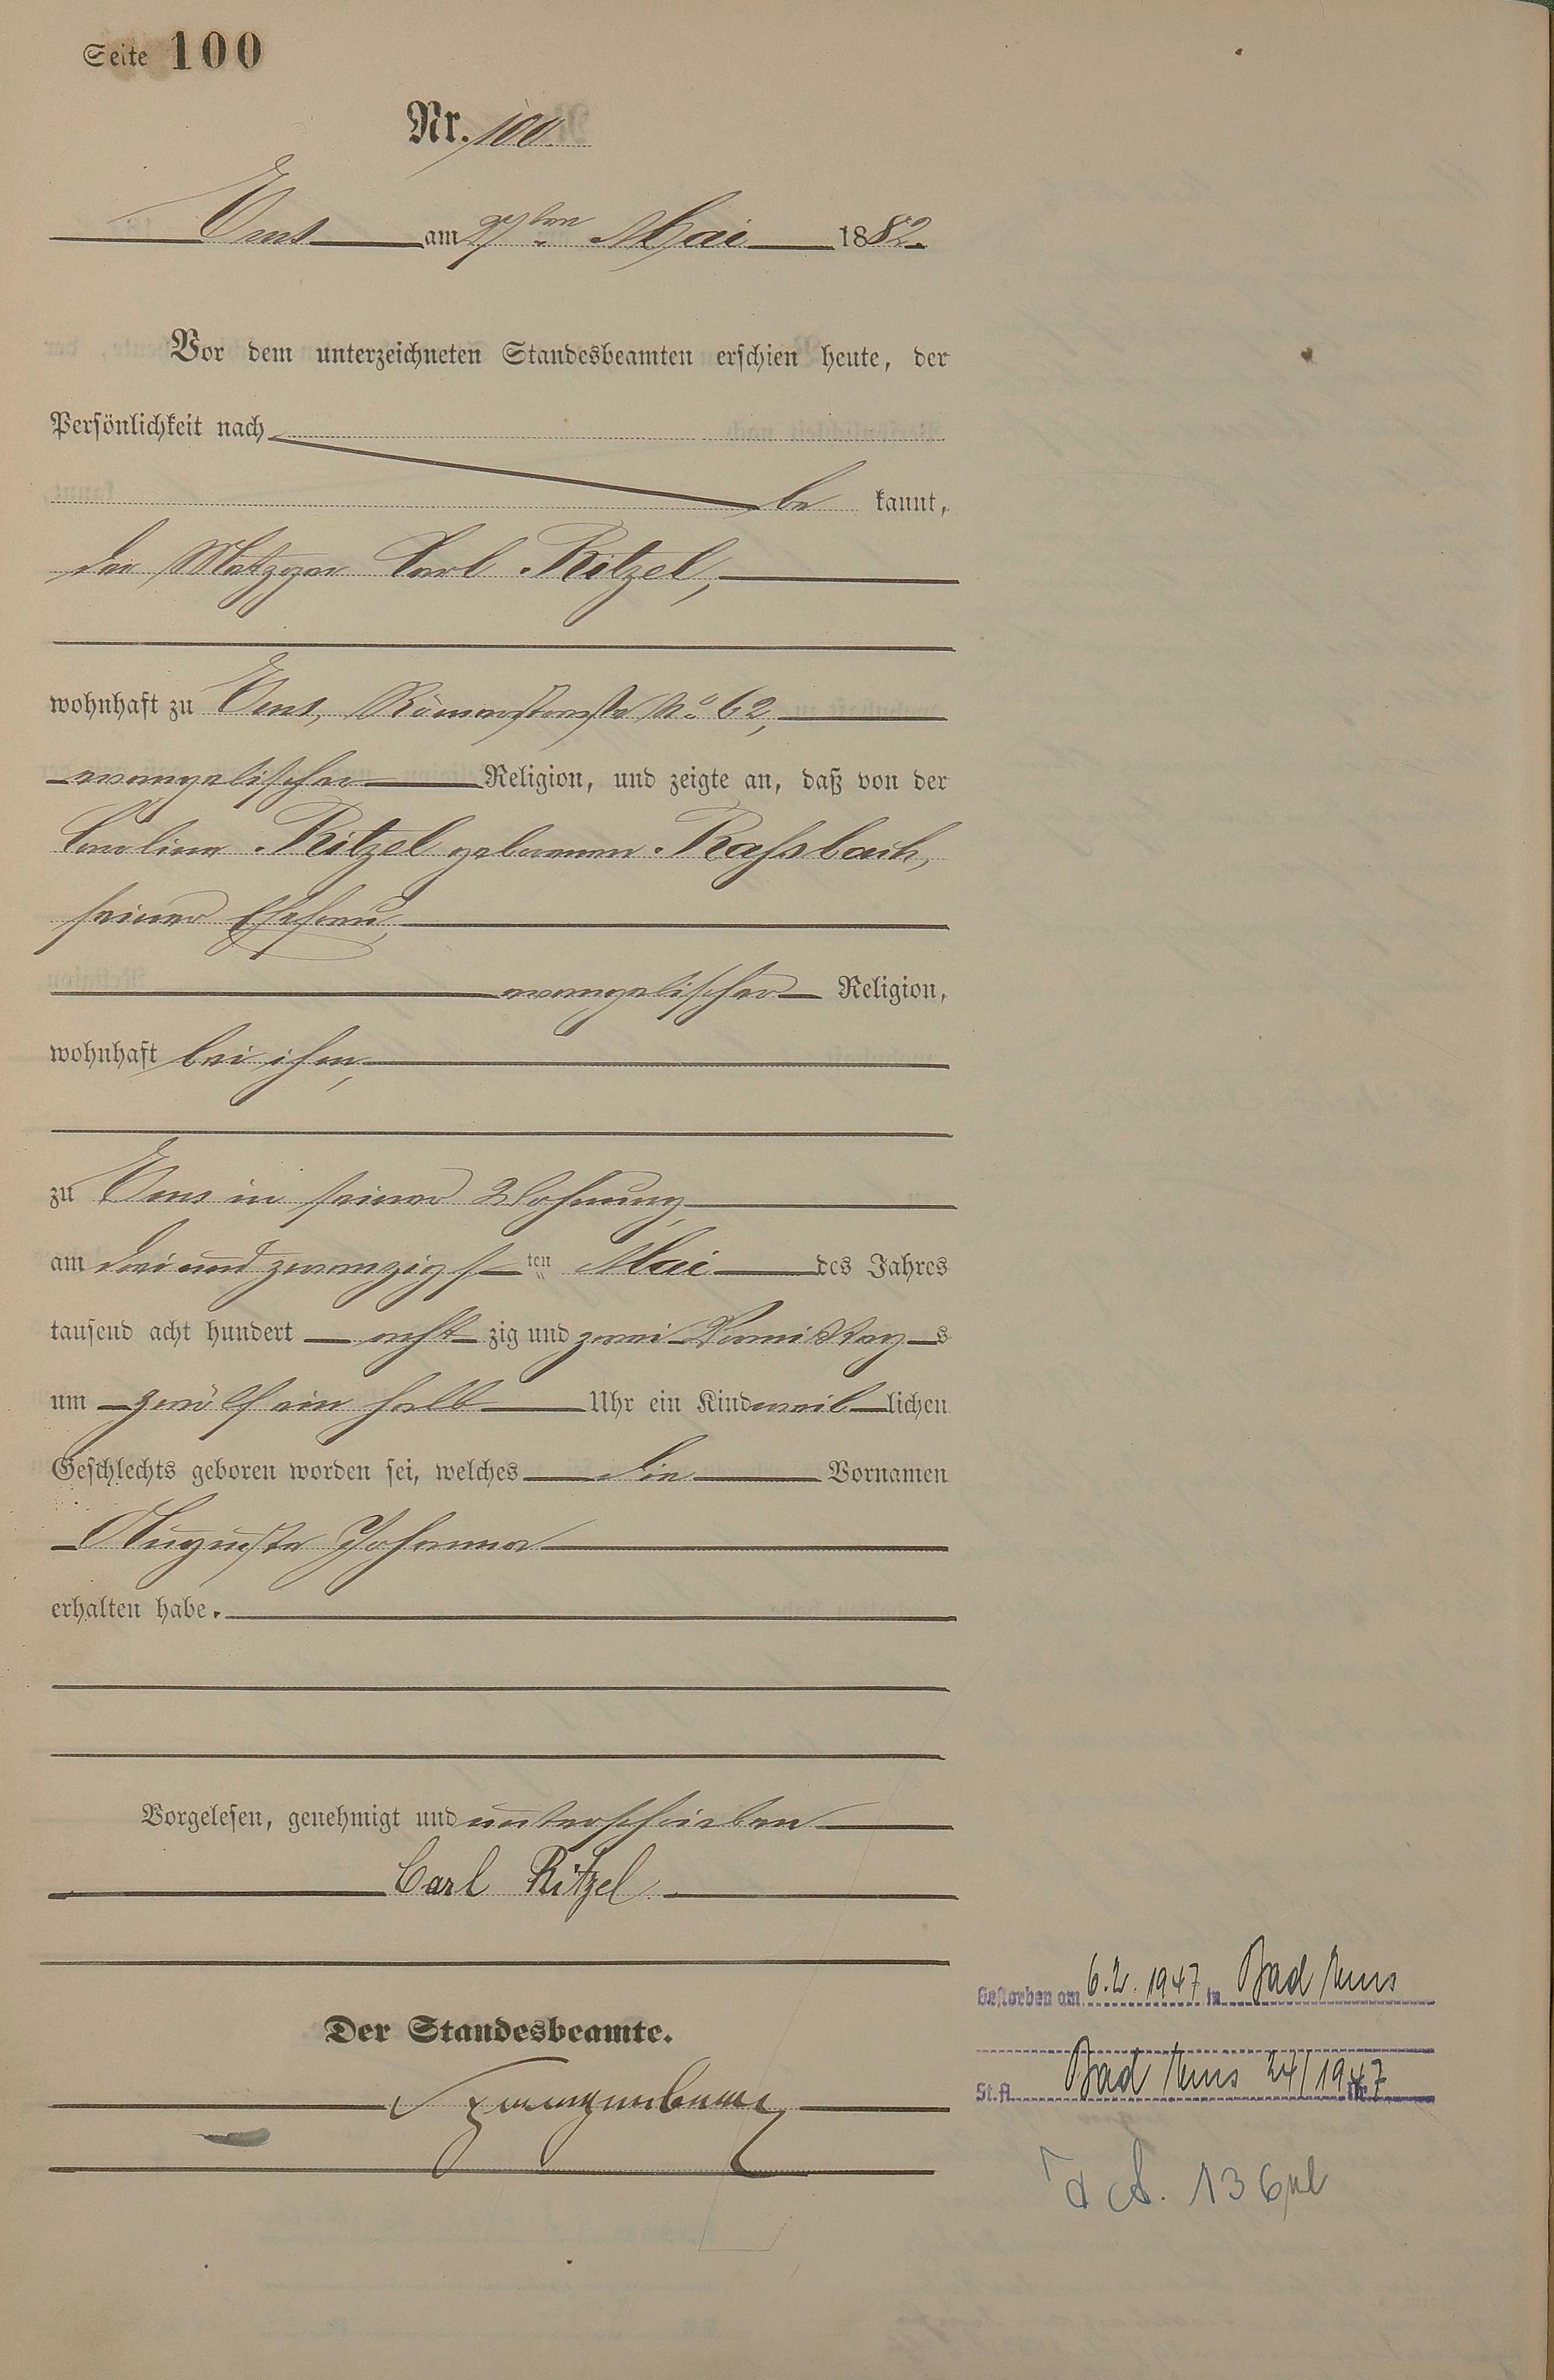 Seite 100
Nr. 100.
Ems am 27ten Mai 1882.
Vor dem unterzeichneten Standesbeamten erschien heute, der
Persönlichkeit nach
be kannt,
der Metzger Carl Ritzel,
wohnhaft zu Ems, Römerstraße No 62,
evangelischer Religion, und zeigte an, daß von der
Caroline Ritzel geborenen Rassbach,
seiner Ehefrau,
evangelischer Religion,
wohnhaft bei ihm,
zu Ems in seiner Wohnung,
am drei und zwanzigsten Mai des Jahres
tausend acht hundert acht zig und zwei Vormittags
um zwölf ein halb Uhr ein Kind weiblichen
Geschlechts geboren worden sei, welches die Vornamen
Auguste Johanna
erhalten habe.
Vorgelesen, genehmigt und unterschrieben
Carl Ritzel
Der Standesbeamte.
Gestorben am 6.2.1947 in Bad Ems
St. A. Bad Ems 24/1947